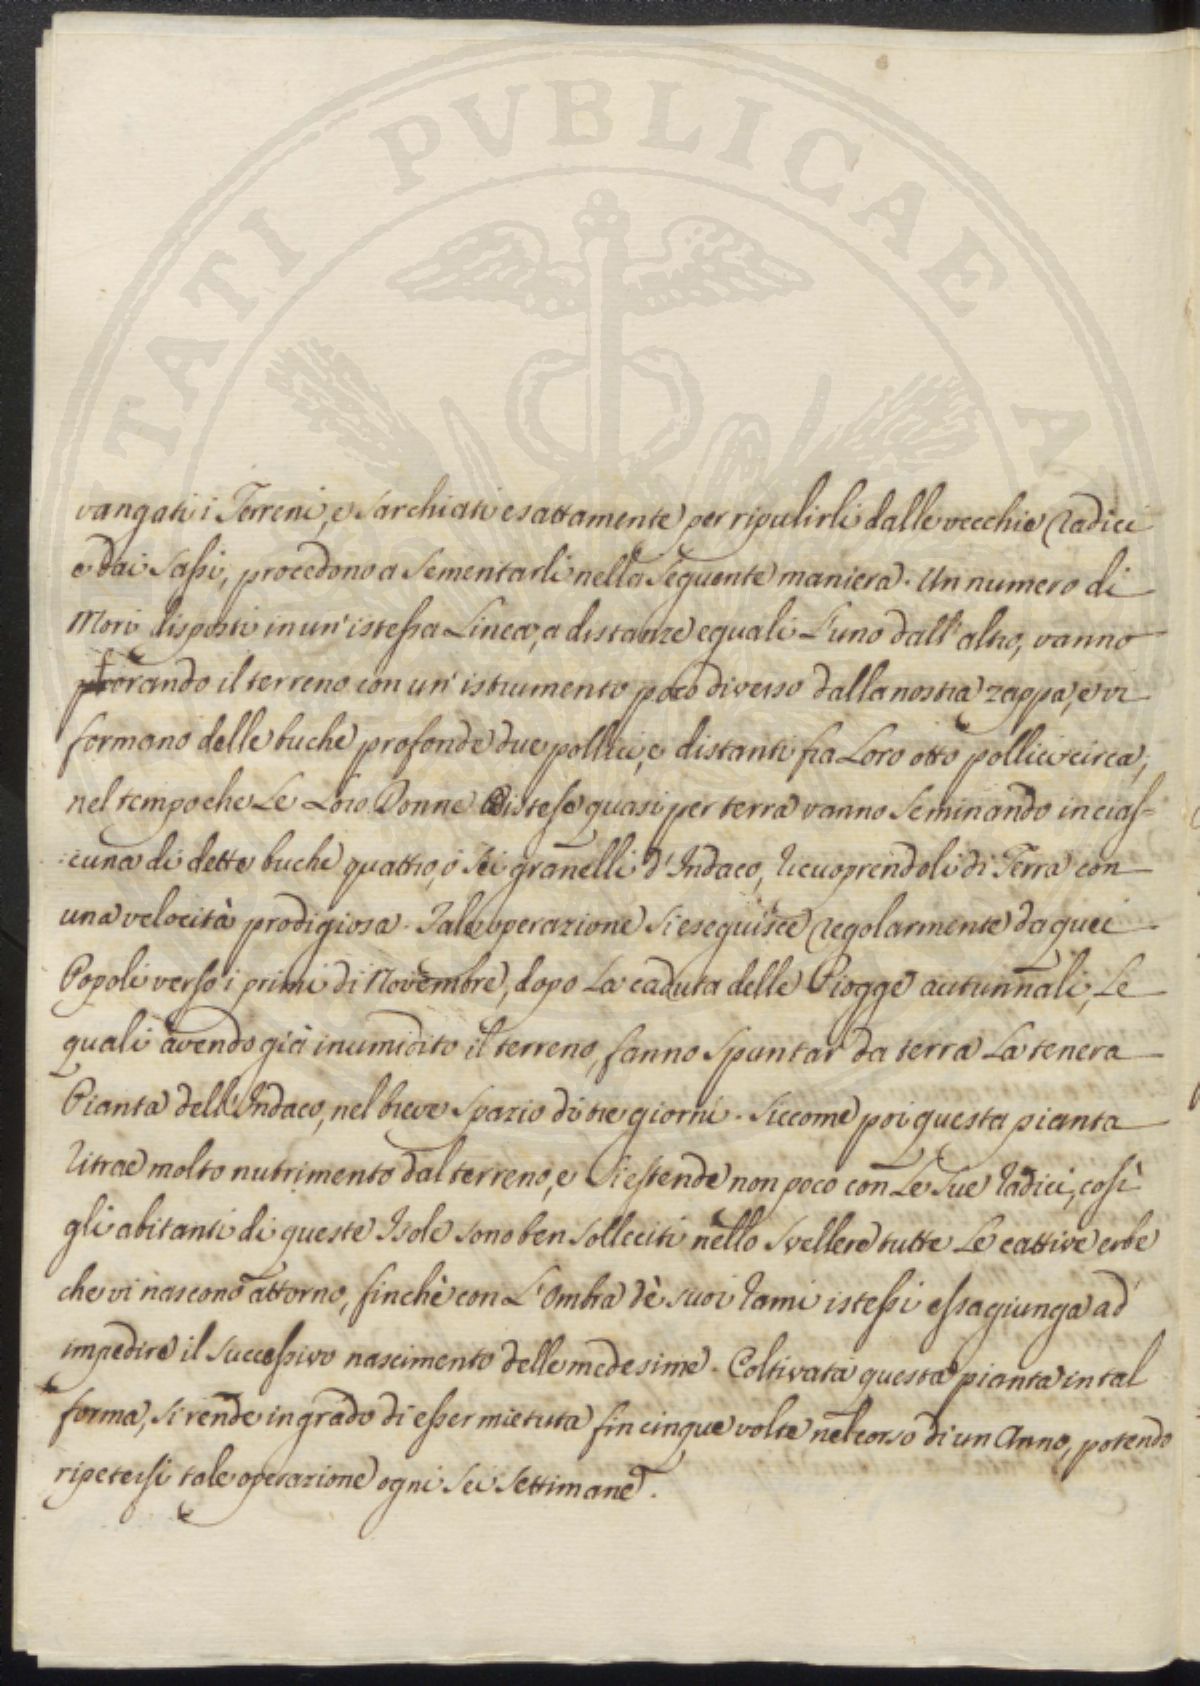 TATI PVBLICAE A
vangati i Terreni, e sarchiati esattamente per ripulirli dalle vecchie Radici
e dai Sassi, procedono a Sementarli nella Seguente maniera. Un numero di
Mori disposti in un' istessa Linea, a distanze eguali L'uno dall' altro, vanno
forando il terreno con un' istrumento poco diverso dalla nostra zappa, e vi
formano delle buche profonde due pollici, e distanti fra Loro otto pollici circa;
nel tempo che Le Loro Donne distese quasi per terra vanno Seminando in cias-
:cuna di dette buche quattro, ó Sei granelli d'Indaco, ricuoprendoli di Terra con
una velocità prodigiosa. Tale operazione Si eseguisce Regolarmente da quei
Popoli verso i primi di Novembre, dopo La caduta delle Piogge autunnali, Le
quali avendo già inumidito il terreno, fanno Spuntar da terra La tenera
Pianta dell'Indaco, nel breve Spazio di tre giorni. Siccome poi questa pianta
ritrae molto nutrimento dal terreno, e Si estende non poco con Le Sue radici, così
gli abitanti di queste Isole sono ben Solleciti nello Svellere tutte Le cattive erbe
che vi nascono attorno, finchè con L'Ombra dè suoi rami istessi essa giunga ad
impedire il Successivo nascimento delle medesime. Coltivata questa pianta in tal
forma, Si rende in grado di esser mietuta fin cinque volte nel corso di un Anno, potendo
ripetersi tale operazione ogni Sei Settimane.